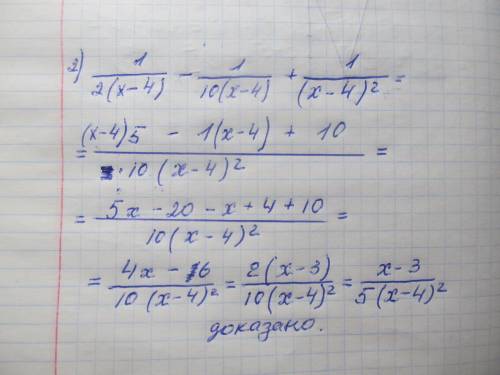 2) 1/(2(x-4)) - 1/(10(x-4)) + 1/(x-4)² =
= ((x-4)5 - 1(x-4) + 10)/(10(x-4)²) =
= (5x - 20 - x + 4 + 10)/(10(x-4)²) =
= (4x - 6)/(10(x-4)²) = 2(x-3)/(10(x-4)²) = (x-3)/(5(x-4)²)
доказано.